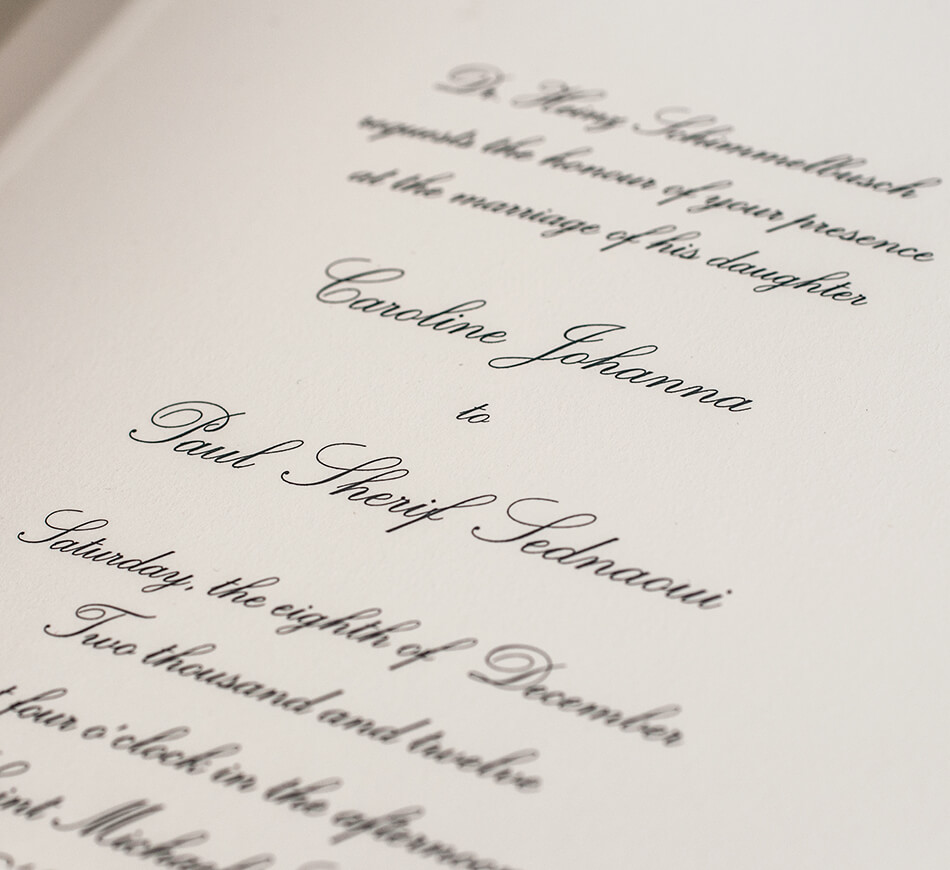 Dr. Heinz Schimmelbusch
requests the honour of your presence
at the marriage of his daughter
Caroline Johanna
to
Paul Sherif Sednaoui
Saturday, the eighth of December
Two thousand and twelve
four o'clock in the afternoon
Michael